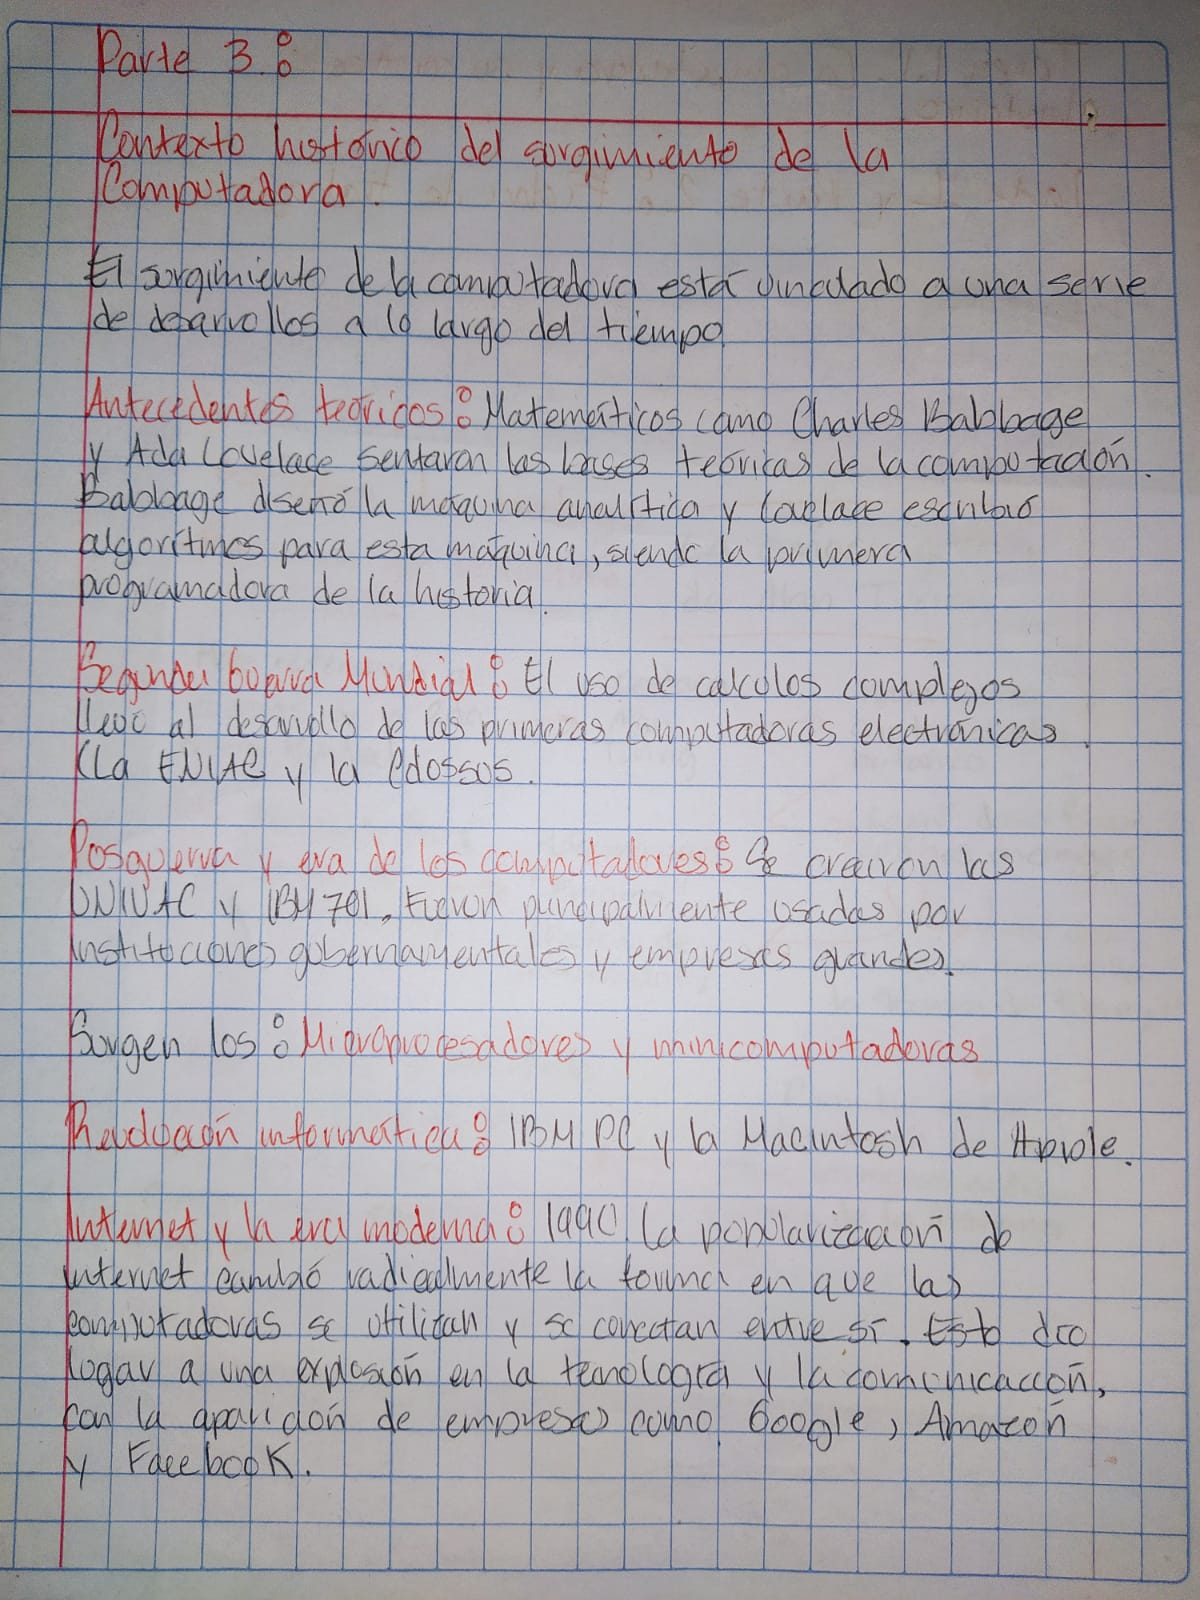 Parte 3:
Contexto histórico del surgimiento de la
Computadora.
El surgimiento de la computadora está vinculado a una serie
de desarrollos a lo largo del tiempo
Antecedentes teóricos: Matemáticos como Charles Babbage
y Ada Lovelace sentaron las bases teóricas de la computación.
Babbage diseñó la máquina analítica y Lovelace escribió
algoritmos para esta máquina, siendo la primera
programadora de la historia.
Segunda Guerra Mundial: El uso de calculos complejos
llevó al desarrollo de las primeras computadoras electrónicas.
(La ENIAC y la Colossos.
Posguerra y era de los computadores: Se crearon las
UNIVAC y IBM 701. Fueron principalmente usadas por
instituciones gubernamentales y empresas grandes.
Surgen los: Microprocesadores y minicomputadoras
Revolución informática: IBM PC y la Macintosh de Apple.
Internet y la era moderna: 1990 la popularización de
internet cambió radicalmente la forma en que las
computadoras se utilizan y se conectan entre sí. Esto dio
lugar a una explosión en la tecnología y la comunicación,
con la aparición de empresas como Google, Amazon
y Facebook.